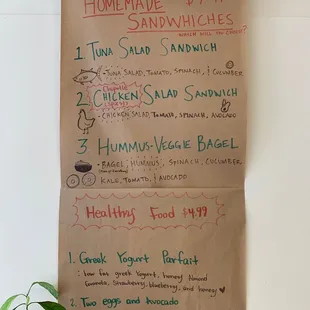 HOMEMADE
SANDWHICHES
WHICH WILL YOU CHOOSE?
1 TUNA SALAD SANDWICH
- TUNA SALAD, TOMATO, SPINACH, & CUCUMBER
2 CHICKEN SALAD SANDWICH
- CHICKEN SALAD, TOMATO, SPINACH, AVOCADO
3 HUMMUS-VEGGIE BAGEL
- BAGEL, HUMMUS, SPINACH, CUCUMBER
KALE, TOMATO, & AVOCADO
Healthy Food $4.99
1. Greek Yogurt Parfait
: low fat greek yogurt, honey almond
granola, strawberry, blueberry, and honey
2. Two eggs and Avocado